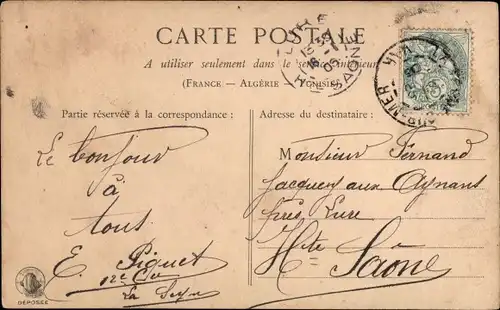 CARTE POSTALE
A utiliser seulement dans le service intérieur
(FRANCE — ALGÉRIE — TUNISIE)
Partie réservée à la correspondance :
Adresse du destinataire :
Le bonjour
à
tous
E. Piguet
La Seyne
Monsieur Fernand
Jacquey aux Aynans
près Lure
Hte Saône
DÉPOSÉE